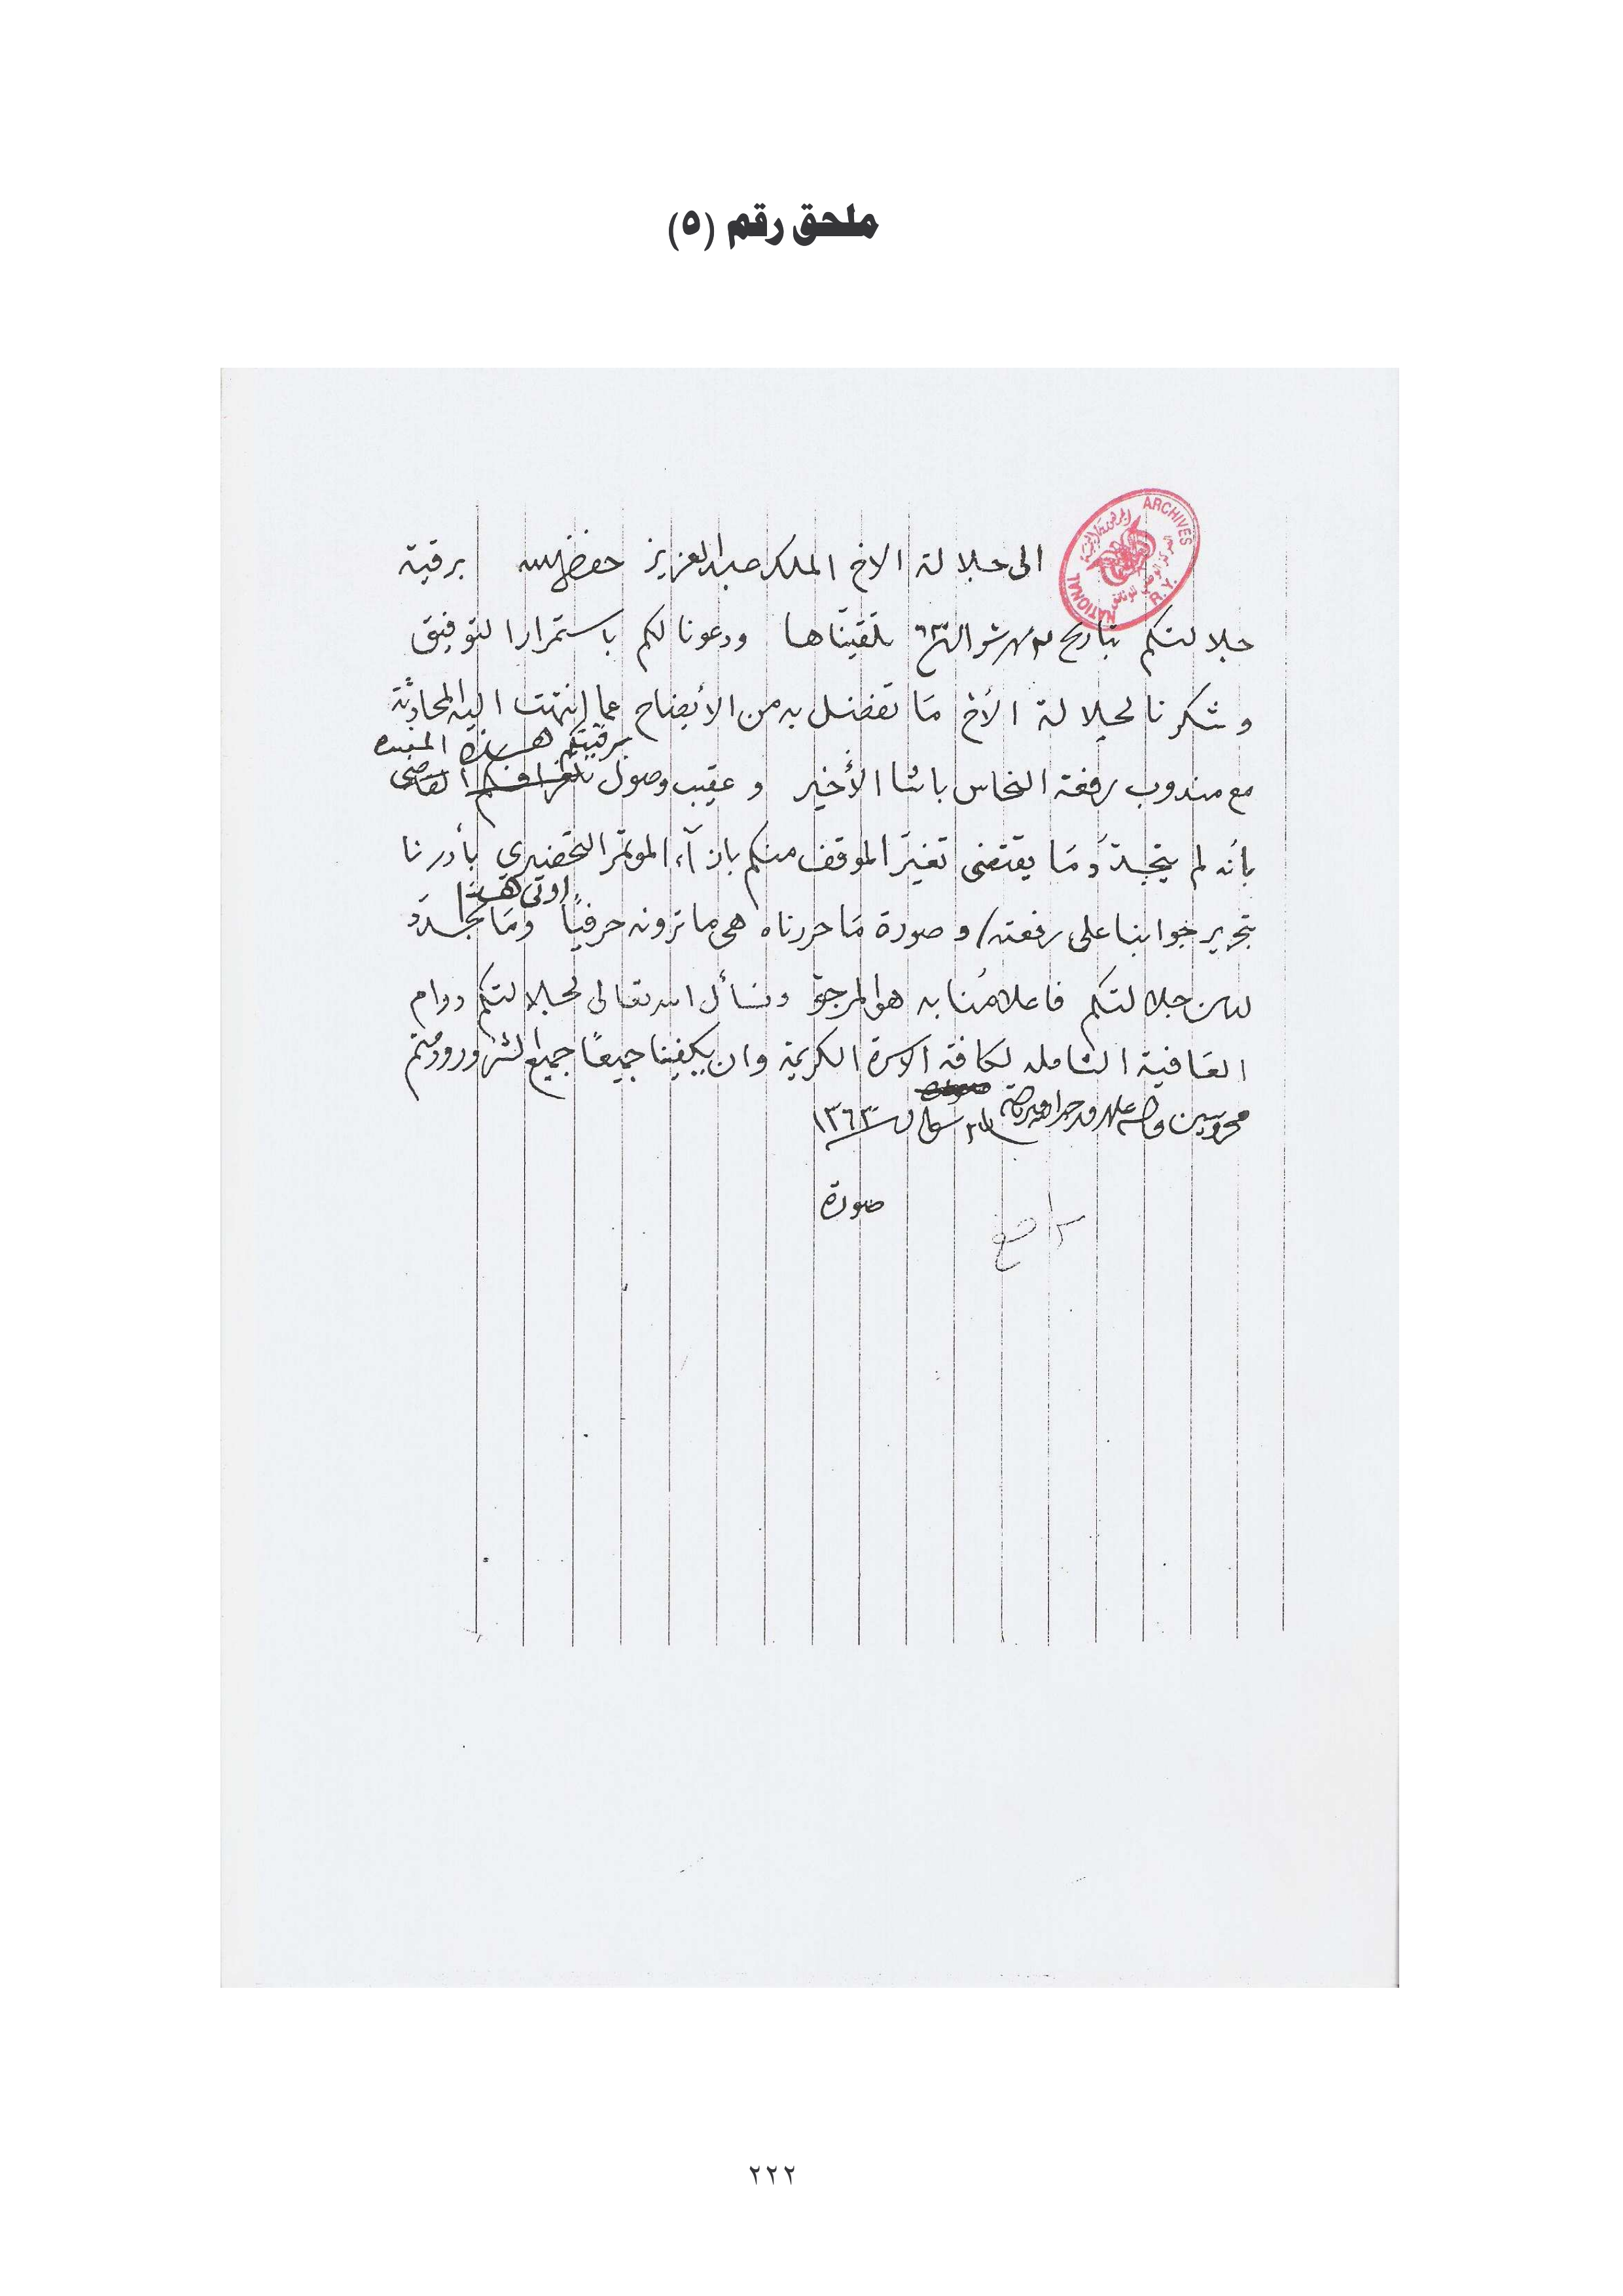 ملحق رقم (٥)
ARCHIVES
NATIONAL
R.Y.
الى جلالة الاخ الملك عبد العزيز حفظه الله برقية
جلالتكم بتاريخ شوال تلقيناها ودعونا لكم باستمرار التوفيق
وشكرنا لجلالة الأخ مَا تفضل به من الأيضاح عما إنتهت اليه المحادثة
برقيتكم هذه المفيده
مع مندوب رفعة النحاس باشا الأخير وعقيب وصول تلغرافكم القاضى
بأنه لم يتجدّد مَا يقتضى تغيّر الموقف منكم بازآء المؤتمر التحضيري بأدرنا
ادنى هذا
بتحرير جوابنا على رفعته/ وصورة مَا حررناه هى ما ترونه حرفيًا ومَا تجدّد
لدى جلالتكم فاعلامُنا به هو المرجو ونسأل الله تعالى لجلالتكم دوام
العَافية الشامله لكافة الاسرة الكريمة وان يكفينا جميعًا جميع الشرور ودمتم
محروسين ١٣٦٣
صورة
٢٢٢